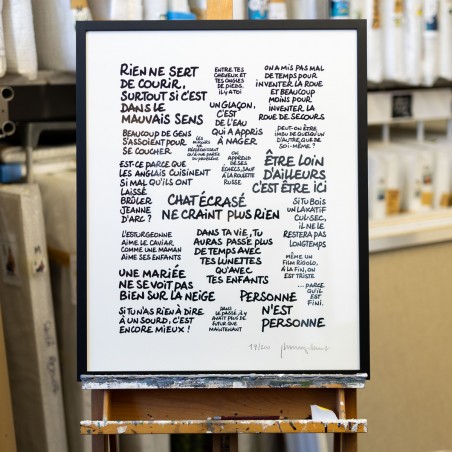 RIEN NE SERT
DE COURIR,
SURTOUT SI C'EST
DANS LE
MAUVAIS SENS
ENTRE TES
CHEVEUX ET
TES ONGLES
DE PIEDS,
IL Y A TOI
ON A MIS PAS MAL
DE TEMPS POUR
INVENTER LA ROUE
ET BEAUCOUP
MOINS POUR
INVENTER LA
ROUE DE SECOURS
UN GLAÇON,
C'EST
DE L'EAU
QUI A APPRIS
À NAGER
BEAUCOUP DE GENS
S'ASSOIENT POUR
SE COUCHER
LES
MIROIRS
NE
QU'UNE PARTIE
DU PROBLÈME
PEUT-ON ÊTRE
IMBU DE QUELQU'UN
D'AUTRE QUE DE
SOI-MÊME ?
ON
APPREND
DE SES
ÉCHECS, SAUF
À LA ROULETTE
RUSSE
ÊTRE LOIN
D'AILLEURS
C'EST ÊTRE ICI
EST-CE PARCE QUE
LES ANGLAIS CUISINENT
SI MAL QU'ILS ONT
LAISSÉ
BRÛLER
JEANNE
D'ARC ?
CHAT ÉCRASÉ
NE CRAINT PLUS RIEN
SI TU BOIS
UN LAXATIF
CUL-SEC,
IL NE LE
RESTERA PAS
LONGTEMPS
L'ESTURGEONNE
AIME LE CAVIAR
COMME UNE MAMAN
AIME SES ENFANTS
DANS TA VIE, TU
AURAS PASSÉ PLUS
DE TEMPS AVEC
TES LUNETTES
QU'AVEC
TES ENFANTS
MÊME UN
FILM RIGOLO,
À LA FIN, ON
EST TRISTE
...PARCE
QU'IL
EST
FINI.
UNE MARIÉE
NE SE VOIT PAS
BIEN SUR LA NEIGE
PERSONNE
N'EST
PERSONNE
SI TU N'AS RIEN À DIRE
À UN SOURD, C'EST
ENCORE MIEUX !
DANS
LE PASSÉ, IL Y
AVAIT PLUS DE
FUTUR QUE
MAINTENANT